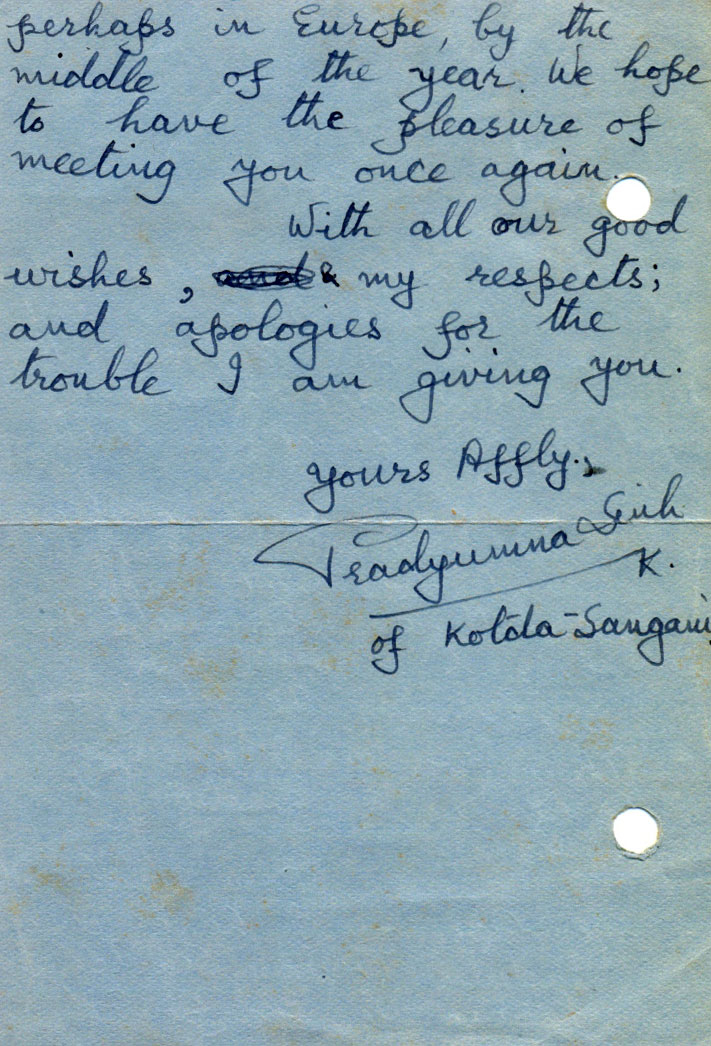 perhaps in Europe, by the
middle of the year. We hope
to have the pleasure of
meeting you once again.
With all our good
wishes, & my respects;
and apologies for the
trouble I am giving you.
Yours Affly.,
Pradyumna Sinh
K.
of Kotda-Sangani